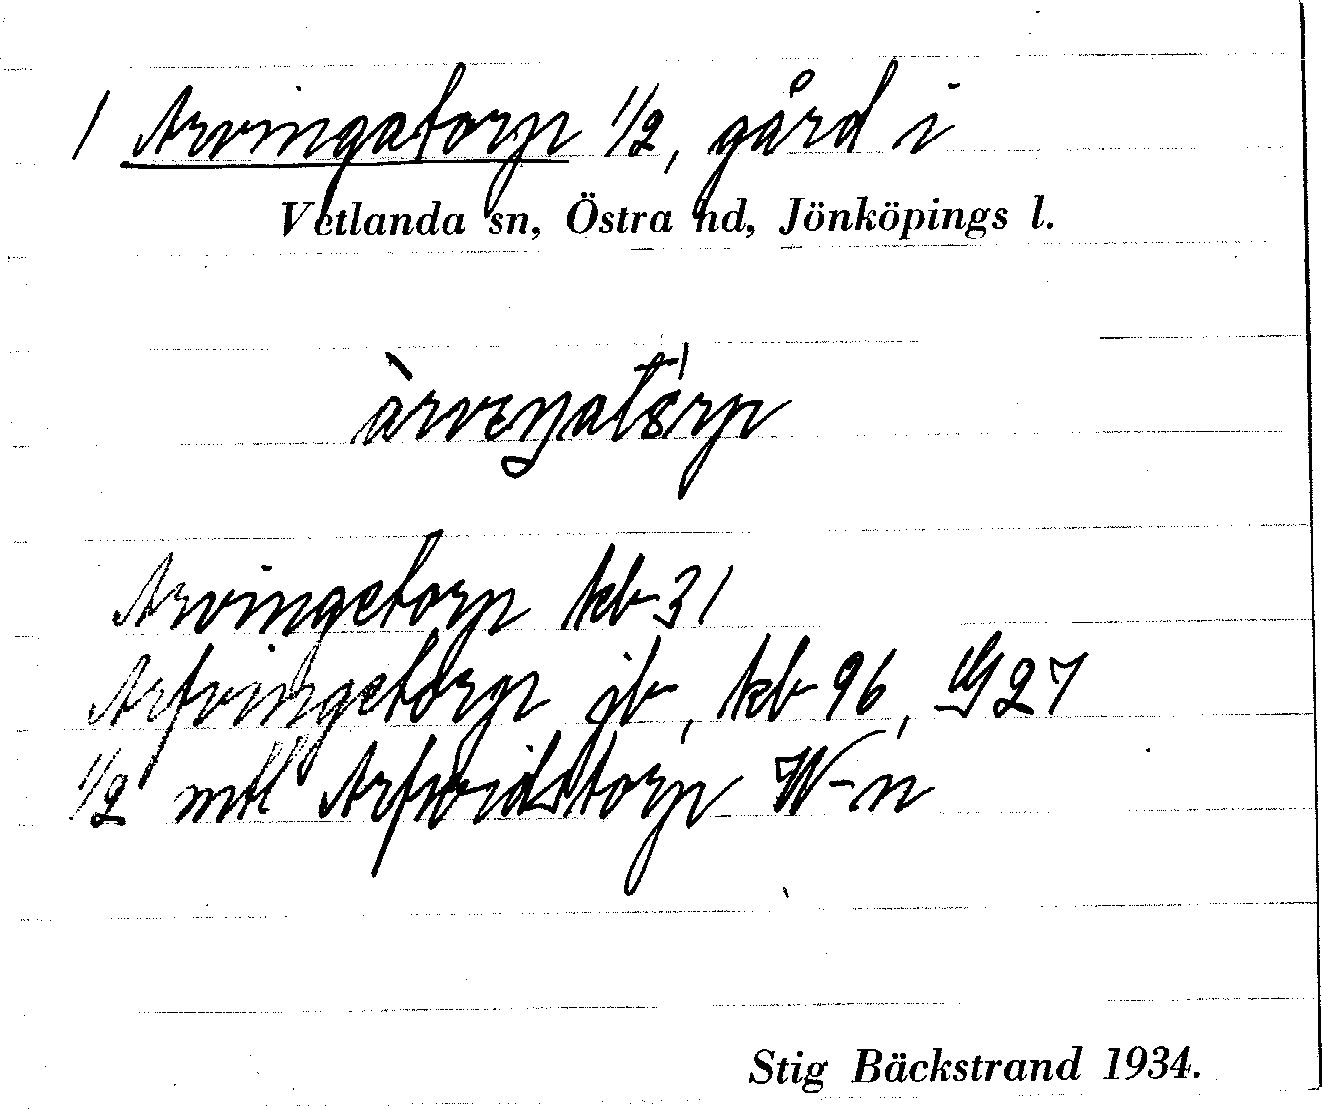 1 Arvingatorp 1/2, gård i
Vetlanda sn, Östra hd, Jönköpings l.
àrvεŋatórp
Arvingetorp kb 31
Arfvingetorp jb, kb 96, GG 27
1/2 mtl Arfwidstorp W-n
Stig Bäckstrand 1934.